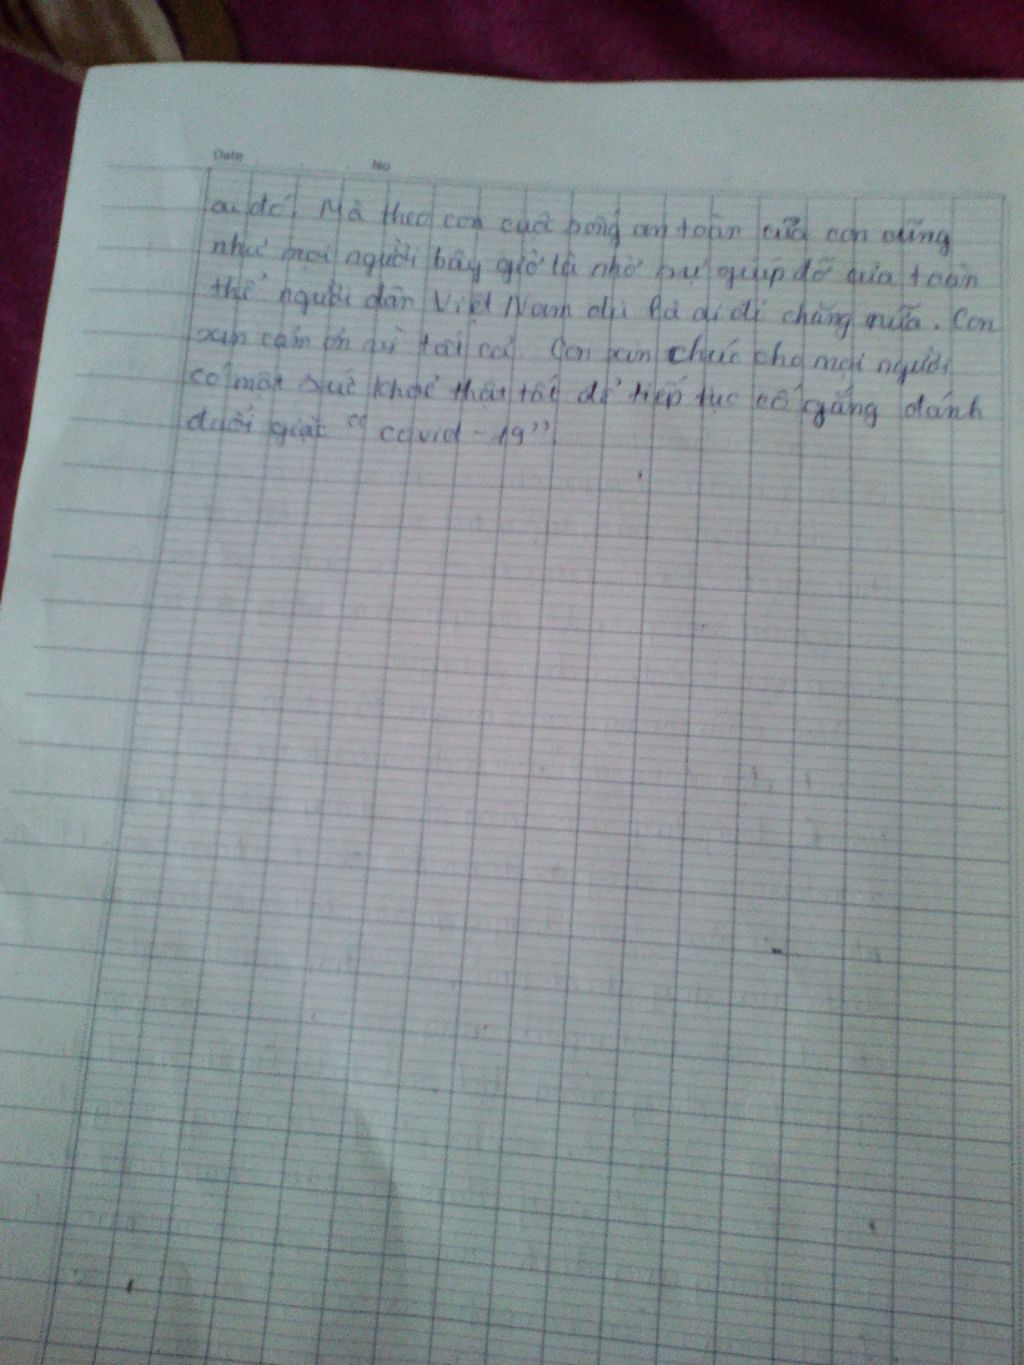 Date No
ai đó. Mà theo con cuộc sống an toàn của con cũng
như mọi người bây giờ là nhờ sự giúp đỡ của toàn
thể người dân Việt Nam dù là ai đi chăng nữa. Con
xin cảm ơn vì tất cả. Con xin chúc cho mọi người
có một sức khoẻ thật tốt để tiếp tục cố gắng đánh
đuổi giặc "covid-19"